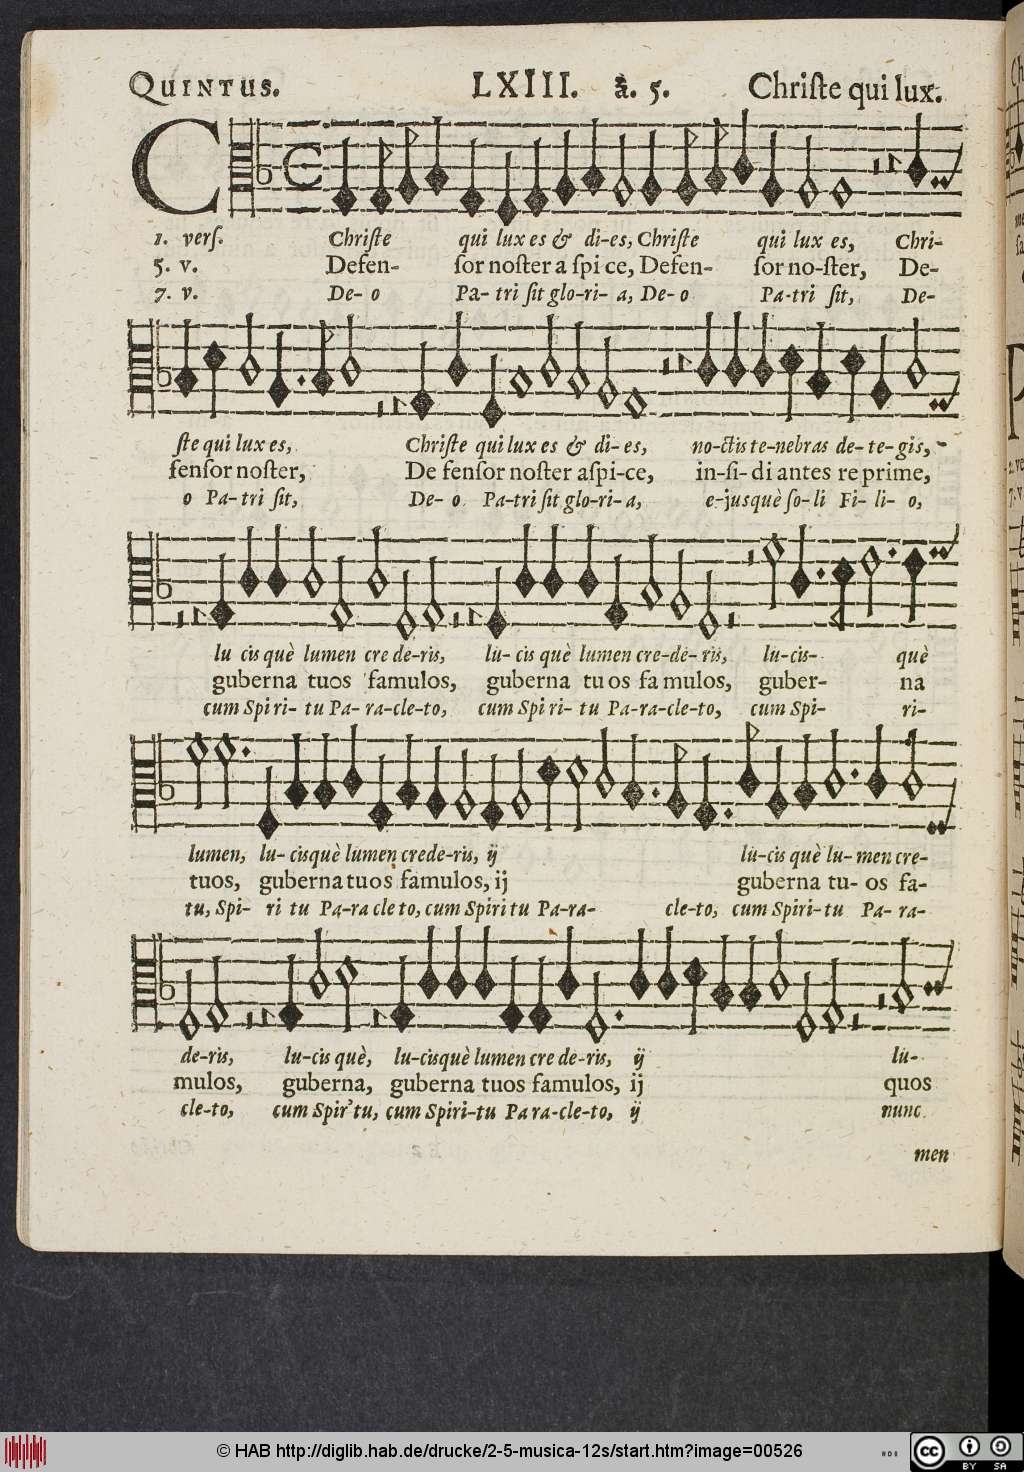 QUINTUS. LXIII. à. 5. Chriſte qui lux.
C
1. verſ. Chriſte qui lux es & di-es, Chriſte qui lux es, Chri-
5. v. Defen- ſor noſter a ſpi ce, Defen- ſor no-ſter, De-
7. v. De- o Pa- tri ſit glo-ri- a, De- o Pa-tri ſit, De-
ſte qui lux es, Chriſte qui lux es & di- es, no-ctis te-nebras de- te- gis,
fenſor noſter, De fenſor noſter aſpi-ce, in-ſi- di antes re prime,
o Pa- tri ſit, De- o Pa-tri ſit glo-ri- a, e-jusquè ſo- li Fi- li- o,
lu cis què lumen cre de-ris, lu- cis què lumen cre-de- ris, lu-cis- què
guberna tuos famulos, guberna tu os fa mulos, guber- na
cum Spi ri- tu Pa- ra-cle-to, cum Spi ri- tu Pa-ra-cle-to, cum Spi- ri-
lumen, lu- cisquè lumen crede-ris, ij lu-cis què lu- men cre-
tuos, guberna tuos famulos, ij guberna tu- os fa-
tu, Spi- ri tu Pa-ra cle to, cum Spiri tu Pa-ra- cle-to, cum Spiri-tu Pa- ra-
de-ris, lu-cis què, lu-cisquè lumen cre de-ris, ij lu-
mulos, guberna, guberna tuos famulos, ij quos
cle-to, cum Spir'tu, cum Spiri-tu Pa ra-cle-to, ij nunc
men
© HAB http://diglib.hab.de/drucke/2-5-musica-12s/start.htm?image=00526
cc BY SA